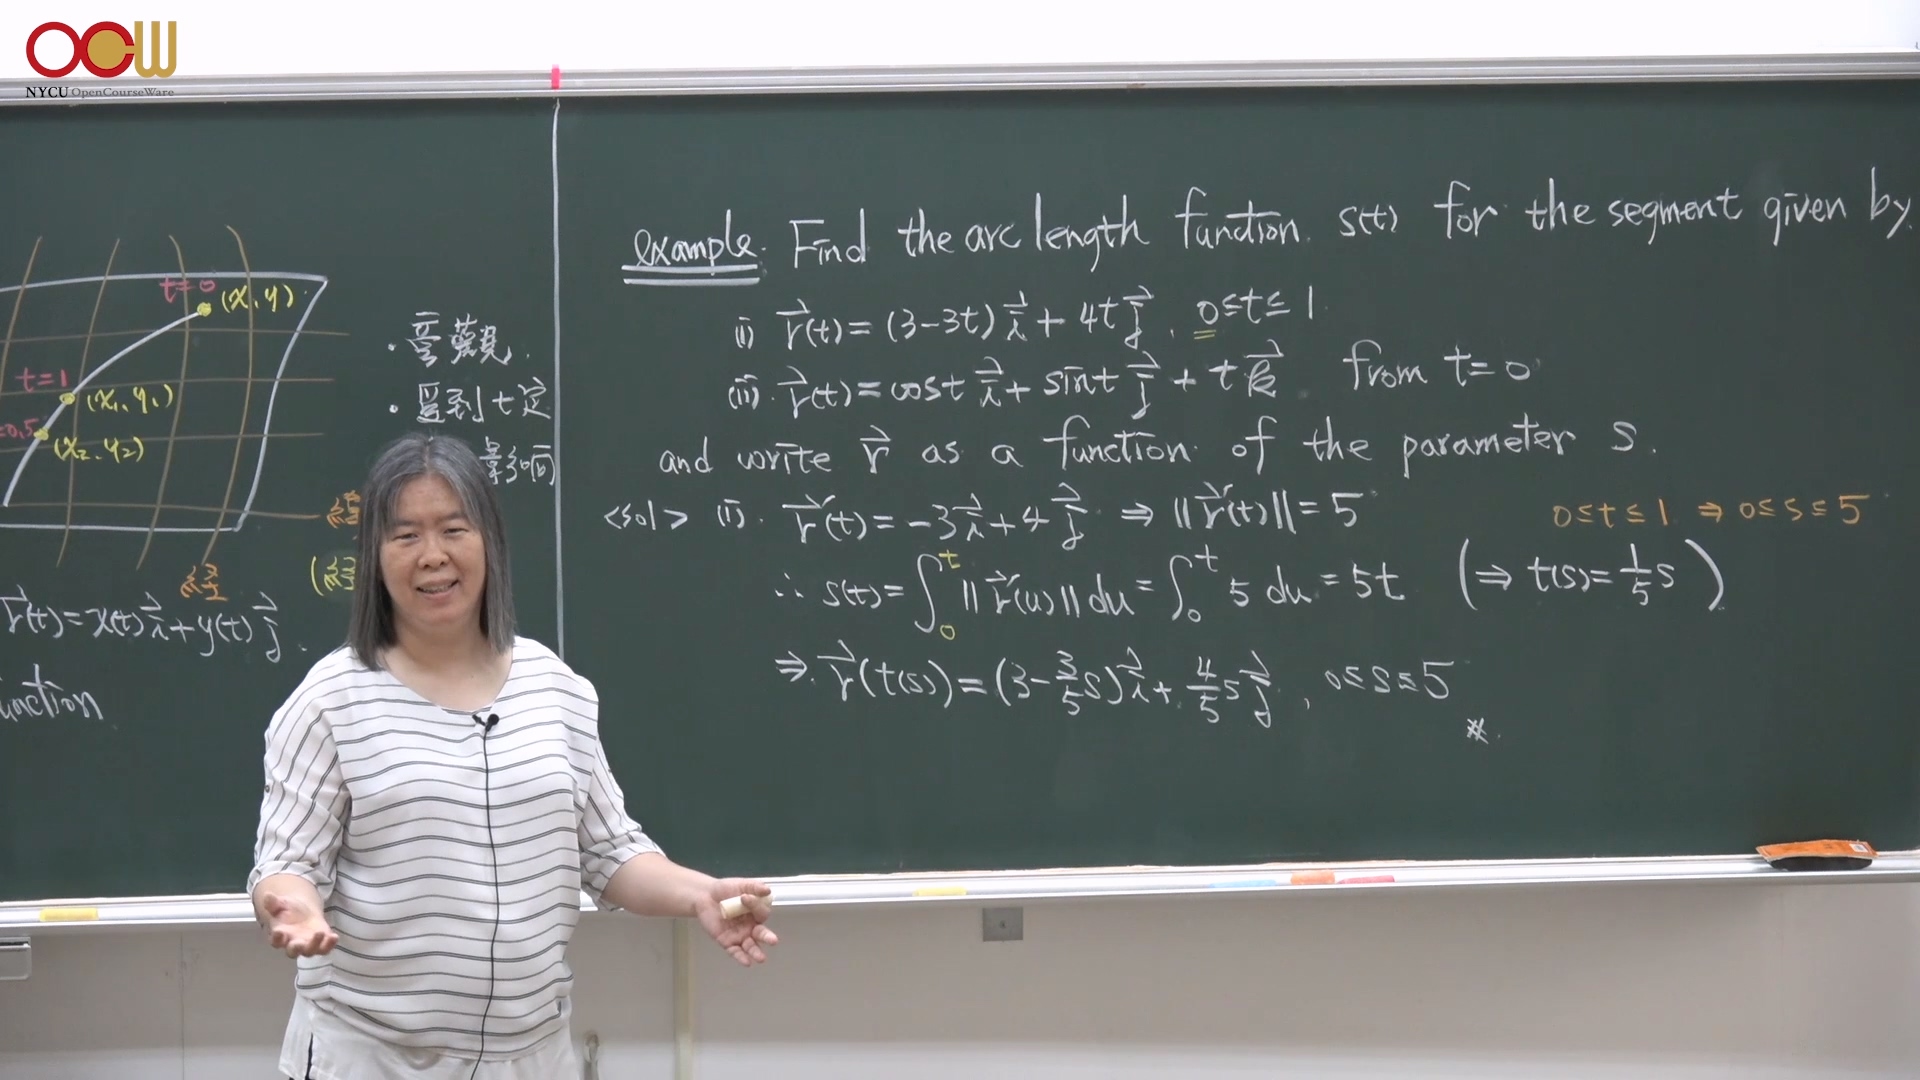 OCW
NYCU OpenCourseWare
t=0
(x,y)
t=1
(x₁,y₁)
(x₂,y₂)
經
r⃗(t)=x(t)i⃗+y(t)j⃗
example. Find the arc length function s(t) for the segment given by
(i) r⃗(t)=(3-3t)i⃗+4tj⃗, 0≤t≤1
(ii). r⃗(t)=cost i⃗+sint j⃗+t k⃗ from t=0
and write r⃗ as a function of the parameter s.
<sol> (i). r⃗'(t)=-3i⃗+4j⃗ ⇒ ||r⃗'(t)||=5
0≤t≤1 ⇒ 0≤s≤5
∴ s(t)=∫₀ᵗ ||r⃗'(u)||du=∫₀ᵗ 5 du=5t (⇒ t(s)=1/5 s)
⇒ r⃗(t(s))=(3-3/5 s)i⃗+4/5 s j⃗, 0≤s≤5